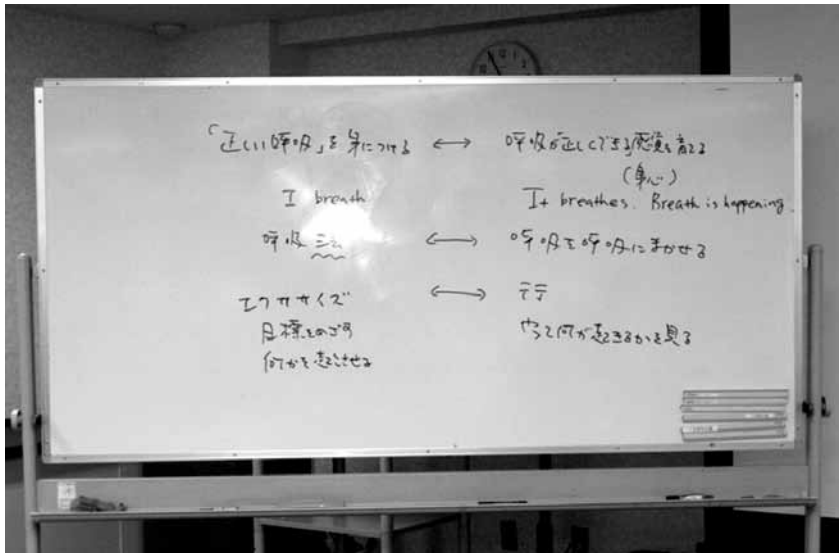 「正しい呼吸」を身につける ↔ 呼吸が正しくできる感覚を育てる
(身心)
I breath It breathes. Breath is happening
呼吸法 ↔ 呼吸を呼吸にまかせる
エクササイズ ↔ 行
目標をめざす やって何が起きるかを見る
何かを起こさせる